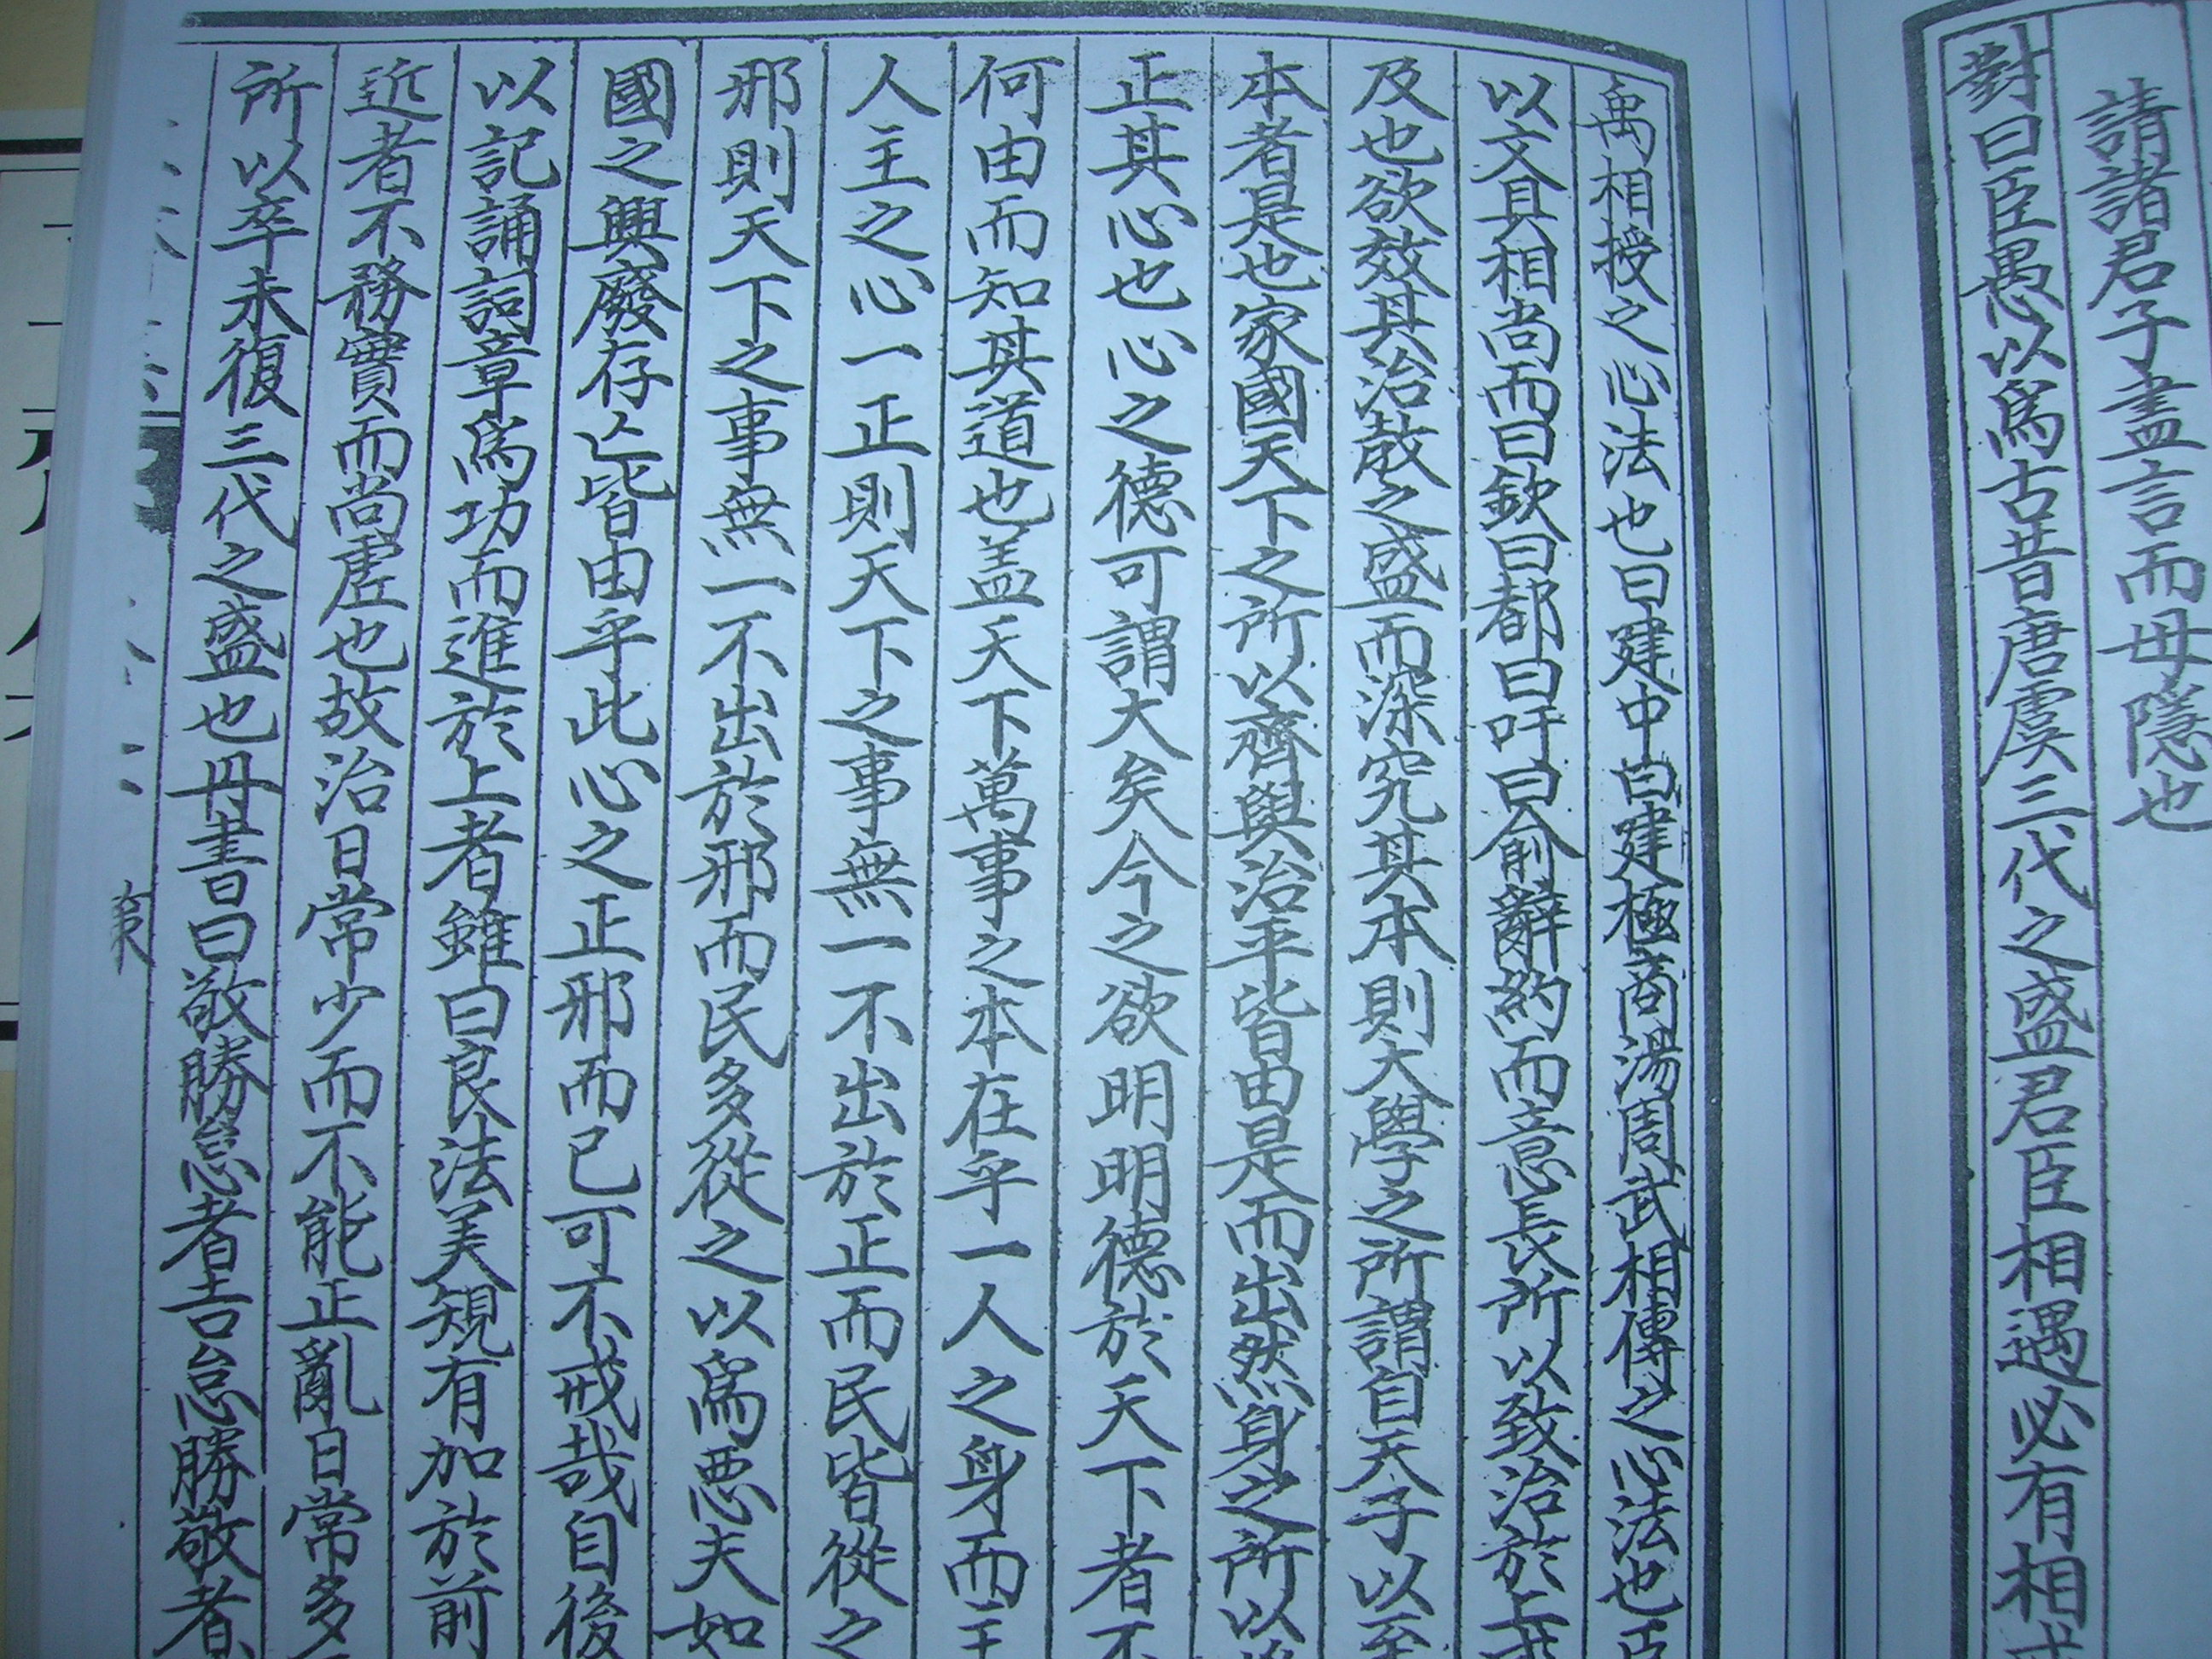 請諸君子盡言而毋隱也
對曰臣愚以爲古昔唐虞三代之盛君臣相遇必有相
禹相授之心法也曰建中曰建極商湯周武相傳之心法也臣
以文具相尚而曰欽曰都曰吁曰俞辭約而意長所以致治於上
及也欲效其治效之盛而深究其本則大學之所謂自天子以至
本者是也家國天下之所以齊與治平皆由是而出然身之所以
正其心也心之德可謂大矣今之欲明明德於天下者不
何由而知其道也盖天下萬事之本在乎一人之身而主
人主之心一正則天下之事無一不出於正而民皆從之
邪則天下之事無一不出於邪而民多從之以爲惡夫如
國之興廢存亡皆由乎此心之正邪而已可不戒哉自後
以記誦詞章爲功而進於上者雖曰良法美規有加於前
近者不務實而尚虛也故治日常少而不能正亂日常多
所以卒未復三代之盛也丹書曰敬勝怠者吉怠勝敬者
策